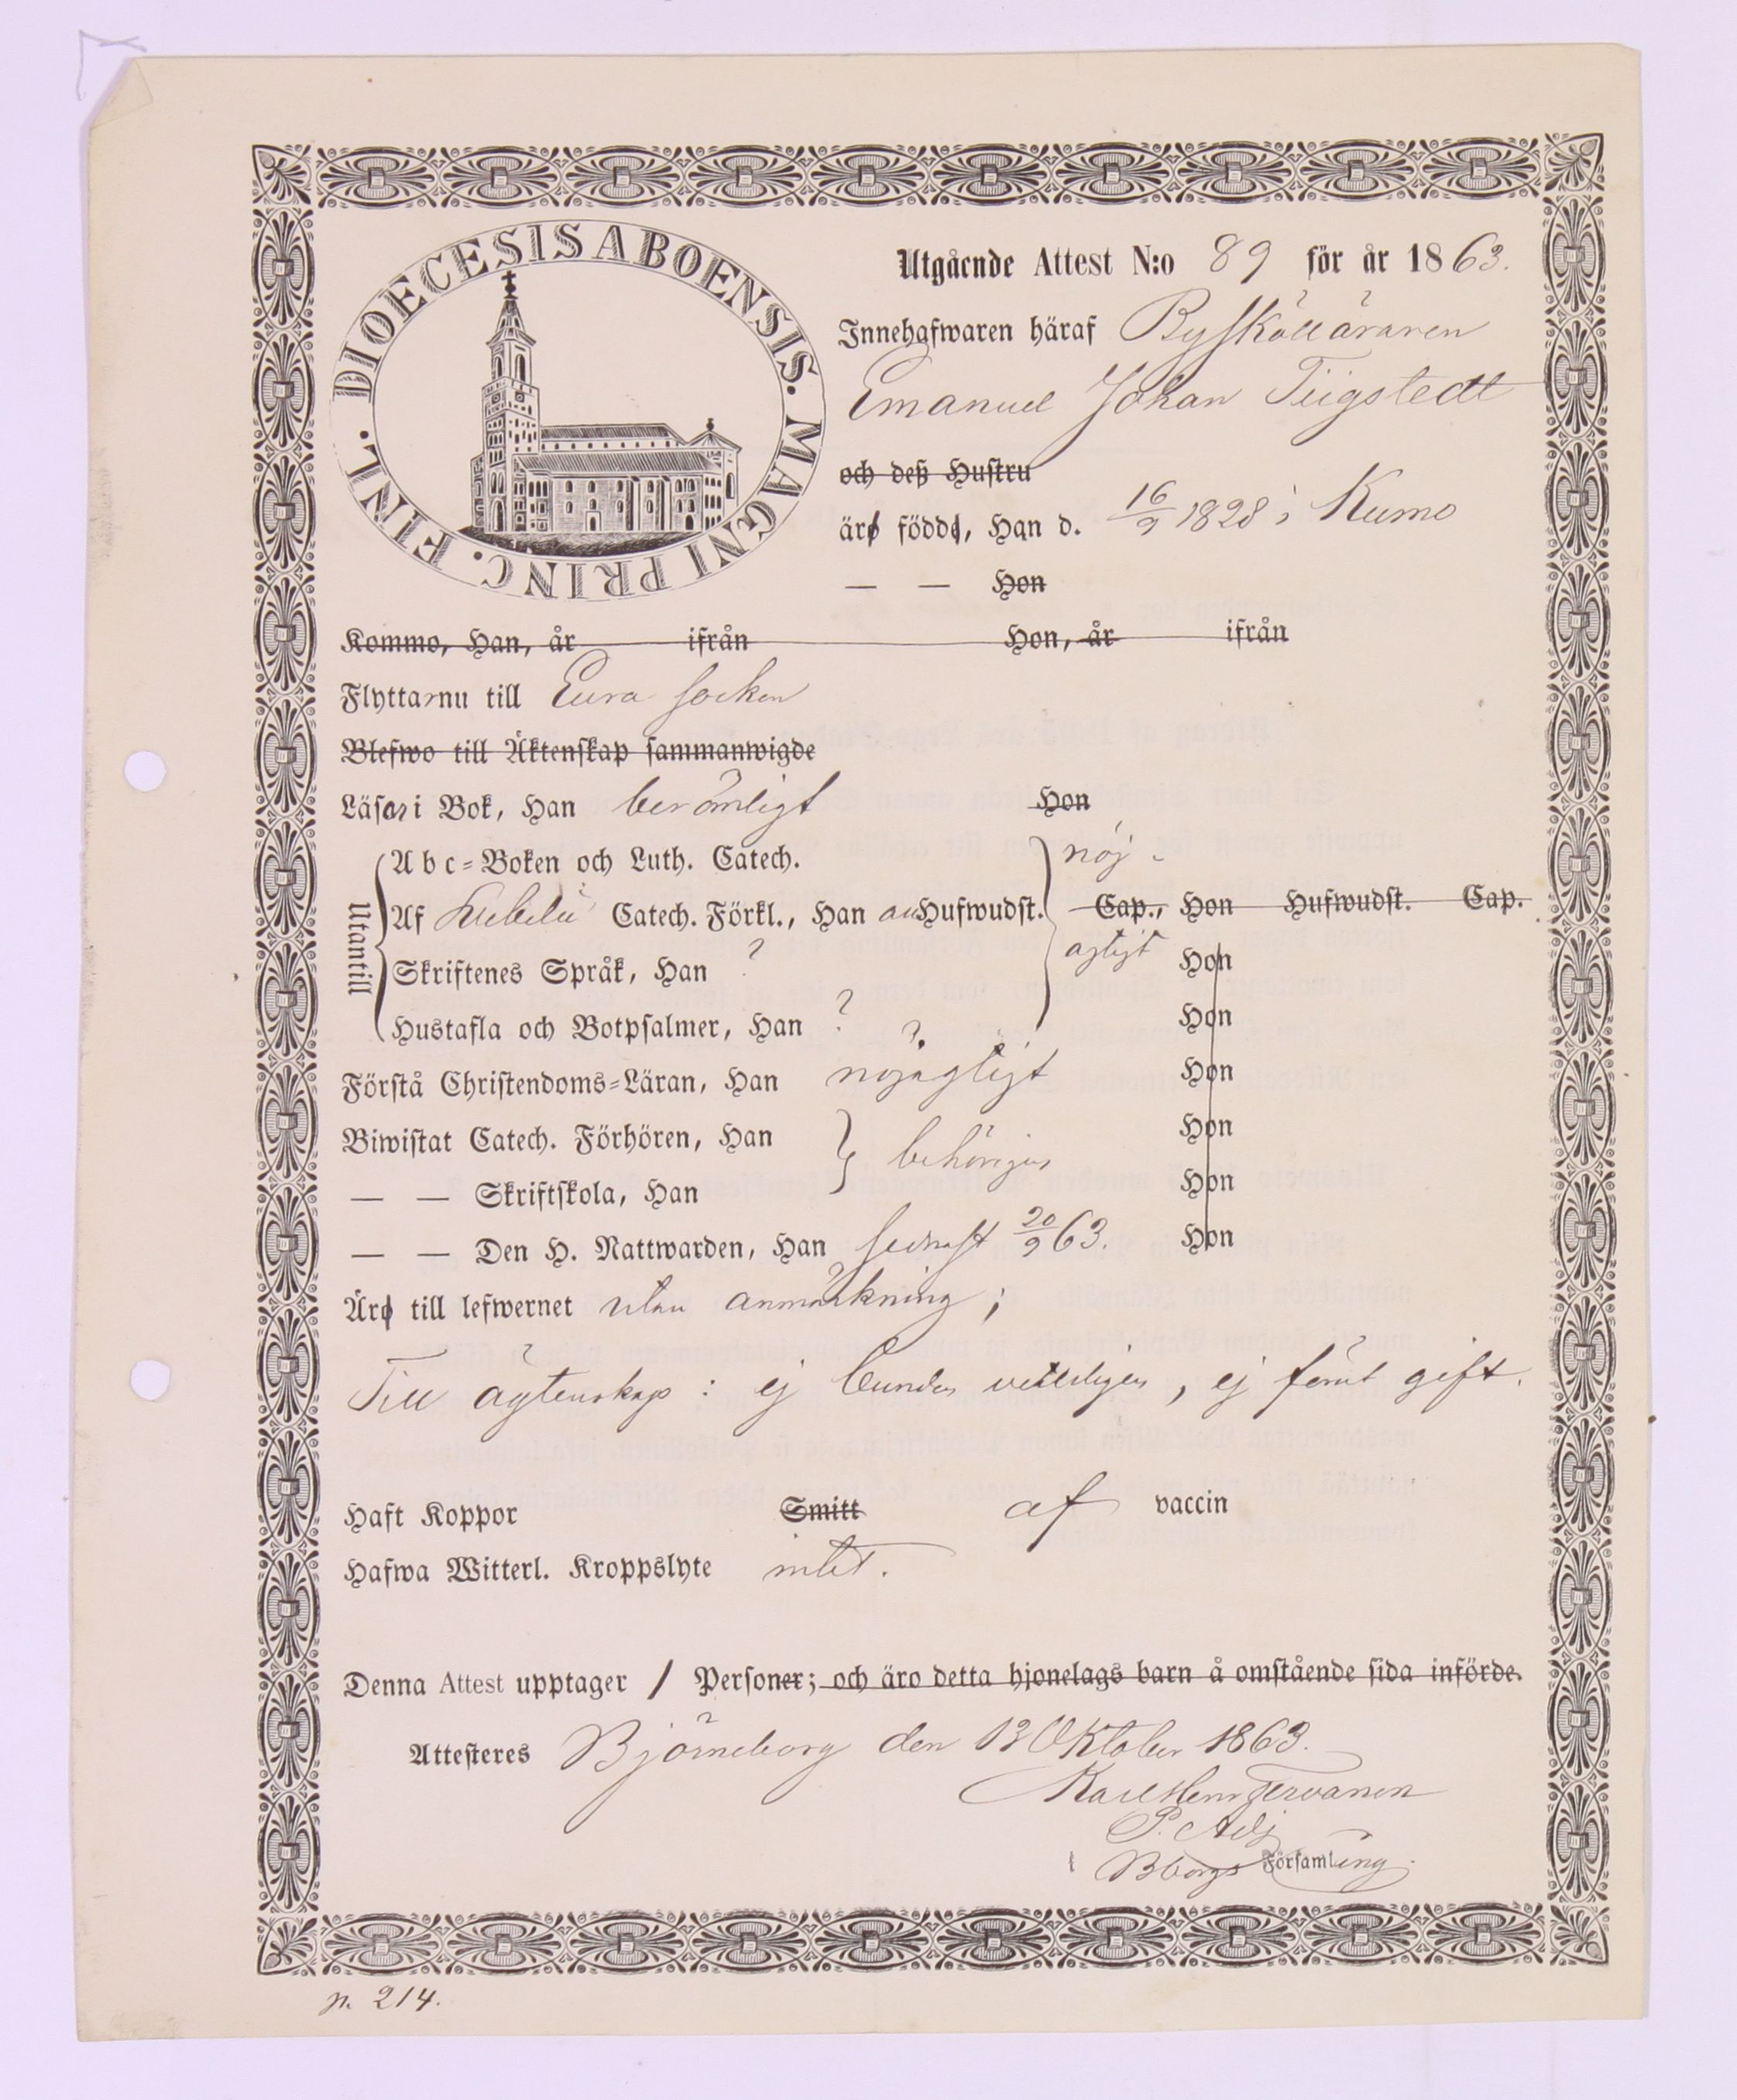 DIOECESIS ABOENSIS. MAGNI PRINC. FINL.
Utgående Attest N:o 89 för år 1863.
Innehafwaren häraf Byskolläraren
Emanuel Johan Tiigstedt
och deß Hustru
äro född, Han d. 16/9 1828 i Kumo
— — Hon
Kommo, Han, år ifrån Hon, år ifrån
Flyttar nu till Eura socken
Blefwo till Äktenskap sammanwigde
Läser i Bok, Han berömligt Hon
Utantill
Abc=Boken och Luth. Catech. nöj-
Af Catech. Förkl., Han Hufwudst. Cap., Hon Hufwudst. Cap.
Skriftenes Språk, Han agtigt Hon
Hustafla och Botpsalmer, Han Hon
Förstå Christendoms=Läran, Han nöjagtigt Hon
Biwistat Catech. Förhören, Han behörigen Hon
— — Skriftskola, Han Hon
— — Den H. Nattwarden, Han sednast 20/9 63. Hon
Är till lefwernet utan anmärkning;
Till ägtenskap: ej bunden veterligen, ej förut gift.
Haft Koppor Smitt af vaccin
Hafwa Witterl. Kroppslyte intet.
Denna Attest upptager 1 Personer; och äro detta hjonelags barn å omstående sida införde.
Attesteres Björneborg den 13 Oktober 1863.
Karl Henr Tervanen
P. Adj
i Bborgs Församling.
p. 214.